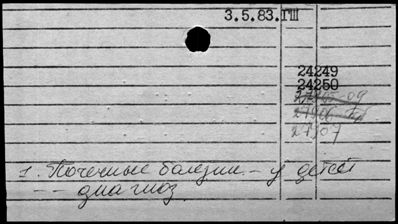 3.5.83.ГШ
24249
24250
27905-09
27906-
27907
1. Почечные болезни - у детей
- - диагноз